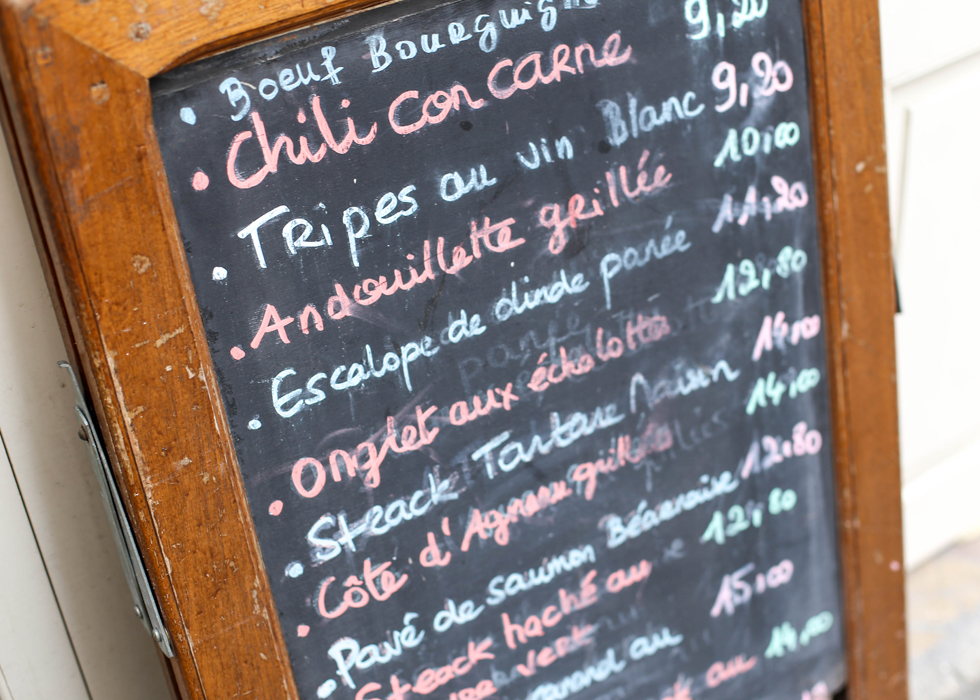 • Boeuf Bourguign 9,20
• Chili con carne 9,20
• Tripes au vin Blanc 10,00
• Andouillette grillée 11,20
• Escalope de dinde panée 12,80
• Onglet aux écholottes 14,00
• Steack Tartare Maison 14,00
• Côte d'Agneau grillés 12,80
• Pavé de saumon Béarnaise 12,80
Steack haché au 15,00
vert
au 14,00
au